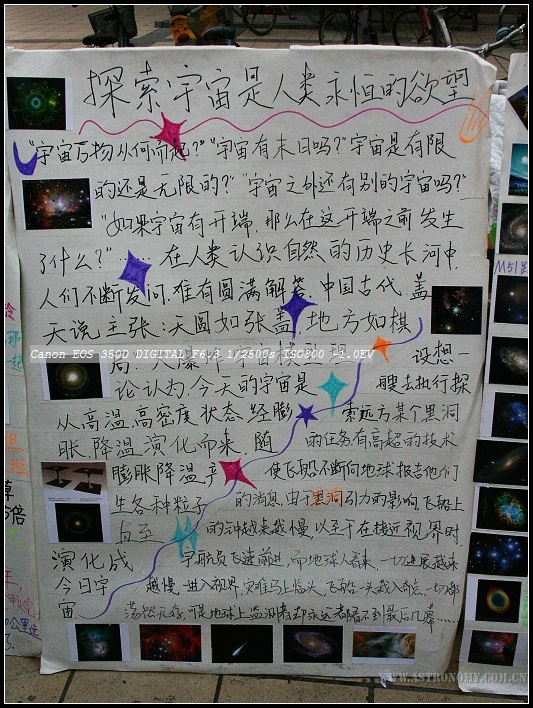 探索宇宙是人类永恒的欲望
"宇宙万物从何而起?""宇宙有末日吗?"宇宙是有限
的还是无限的?""宇宙之外还有别的宇宙吗?"
"如果宇宙有开端,那么在这开端之前发生
了什么?"……在人类认识自然的历史长河中,
人们不断发问,难有圆满解答.中国古代盖
天说主张:天圆如张盖,地方如棋
局.大爆炸宇宙模型理
论认为,今天的宇宙是
从高温,高密度状态经膨
胀,降温演化而来,随
膨胀降温,产
生各种粒子
演化成
今日宇
宙.
设想一
艘去执行探
索远方某个黑洞
的任务有高超的技术
使飞船不断向地球报告他们
的消息,由于黑洞引力的影响,飞船上
的六冲越来越慢,以至于在接近视界时,
宇航员飞速前进,而地球人看来,一切进展越来
越慢.一进入视界,灾难马上临头,飞船一头栽入奇点,一切都
荡然无存,可是地球上监测者却永远都看不到最后几幕……
Canon EOS 350D DIGITAL F6.3 1/2500s ISO800 -2.0EV
M51
WWW.ASTRONOMY.COM.CN